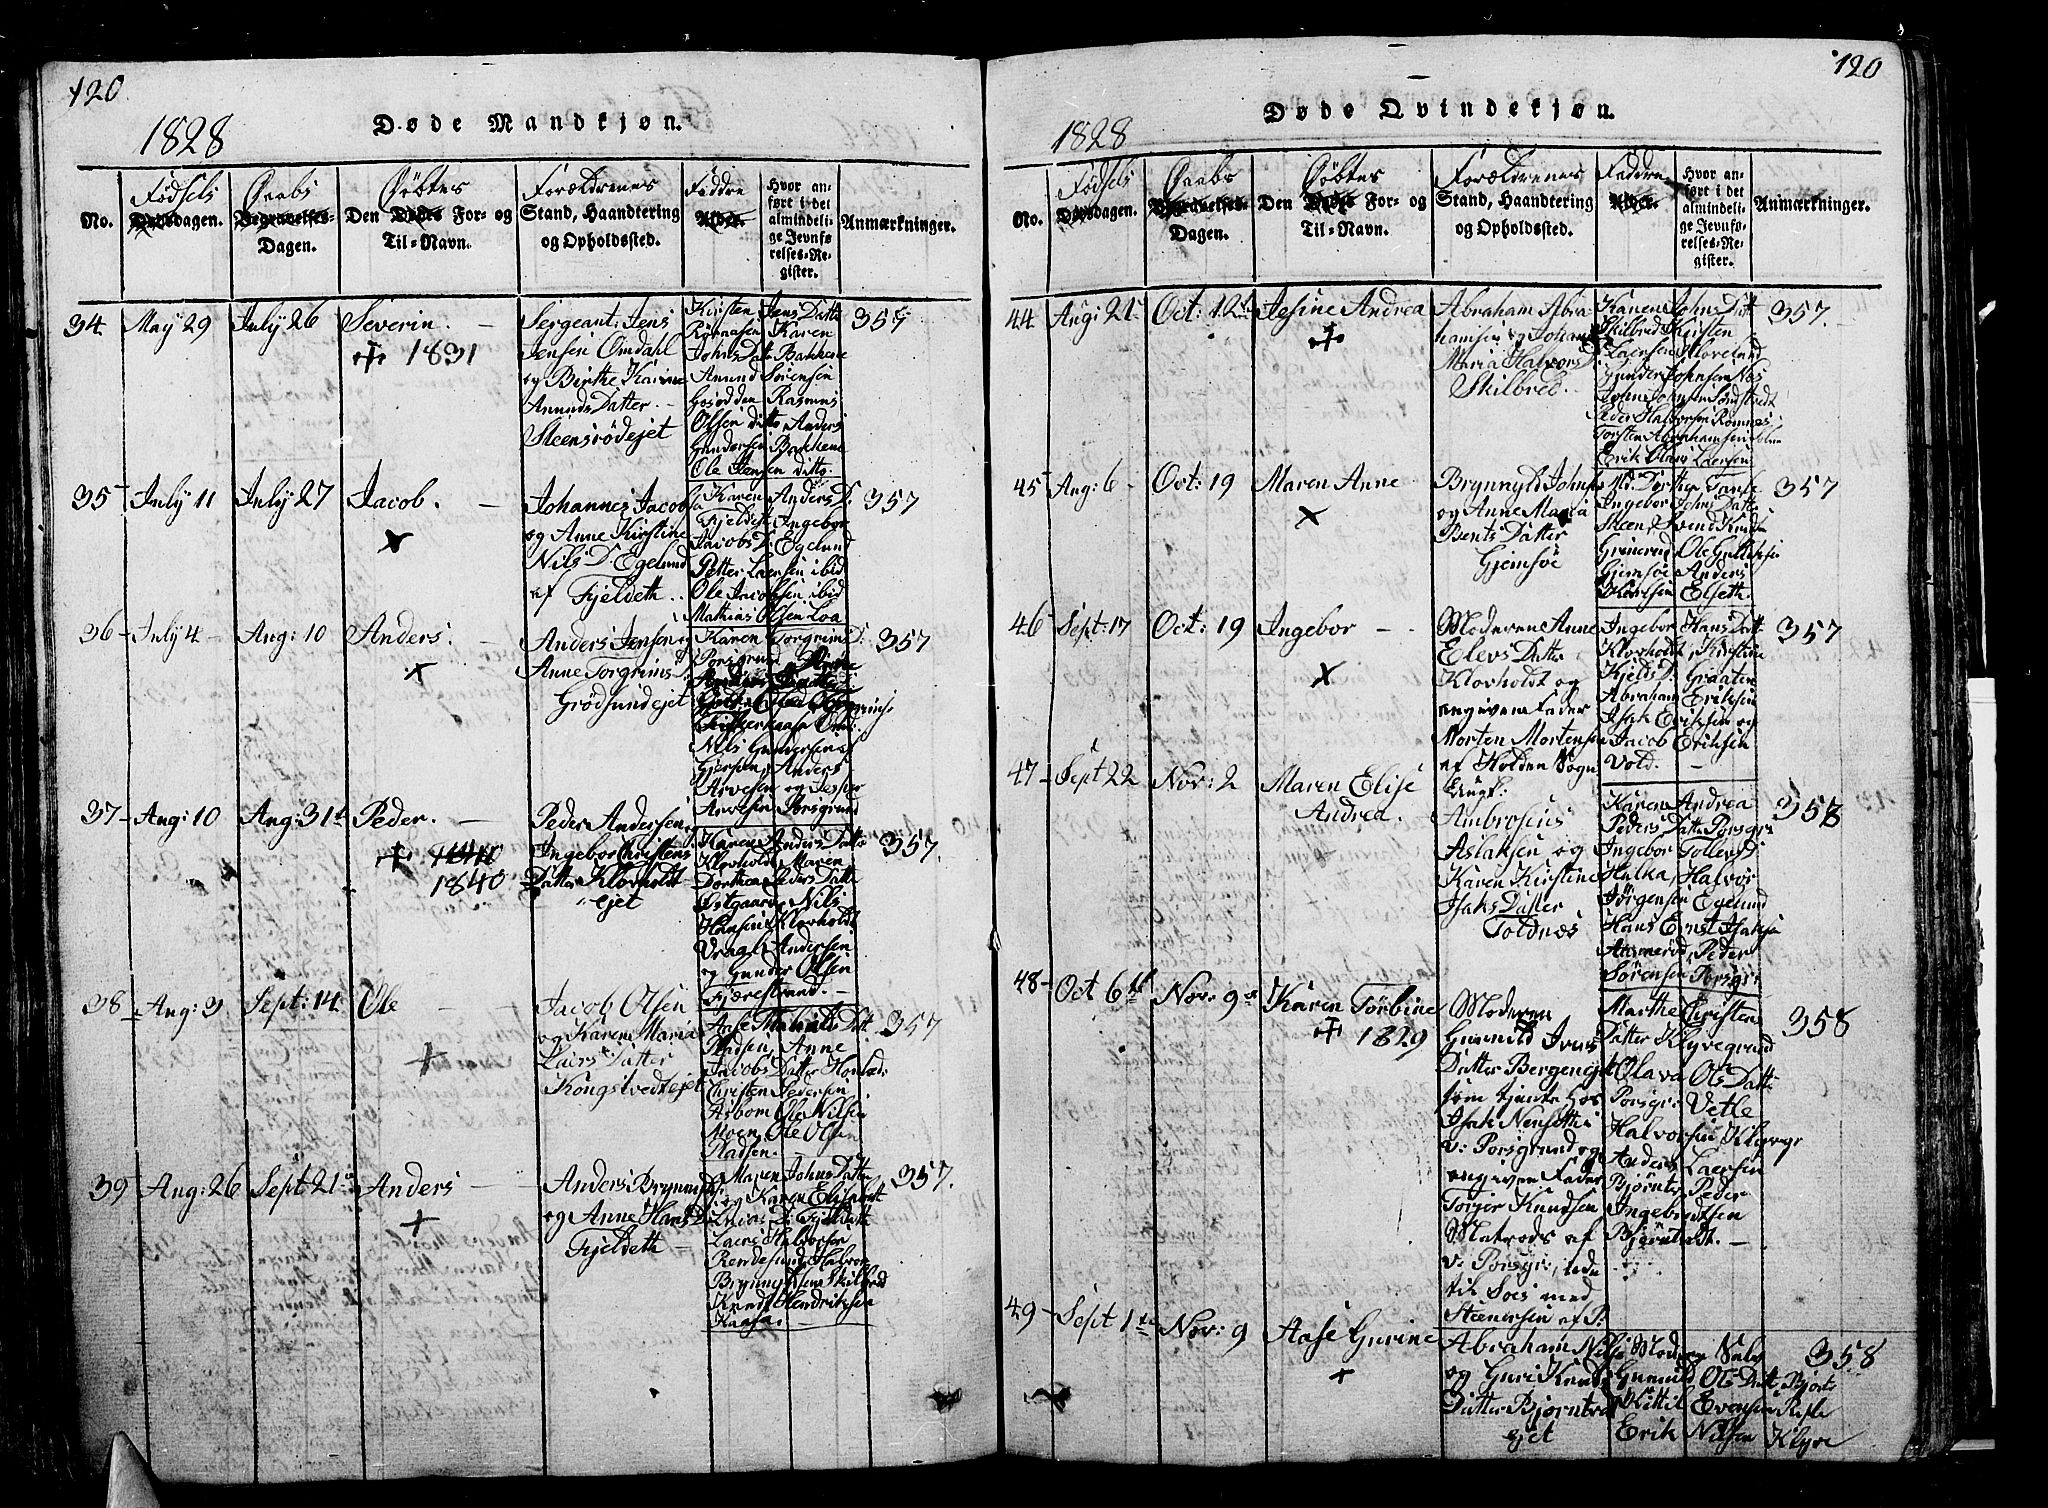 120
1828
Døde Mandkjøn.
No.
Fødsels
Dødsdagen.
Daabs
Begravelses-
Dagen.
Døbtes
Den Dødes For- og
Til-Navn.
Forældrenes
Stand, Haandtering
og Opholdssted.
Faddre
Alder.
Hvor an-
ført i det
almindeli-
ge Jevnfø-
relses-Re-
gister.
Anmærkninger.
34 May 29 July 26 Severin. —
1831
Sergeant Jens
Jensen Omdahl
og Birthe Karine
Amunds Datter. —
Steensrødejet
Kirsten Jens Datte
Røraasen Karen
Johns Dat Bakkene
Amund Sørensen
Rasmus
Olsen ditto Anders
Gundersen Bakkene
Ole Jensen ditto.
357
35 July 11 July 27 Jacob. —
Johannes Jacob
og Anne Kirstine
Nils D. Egelund
af Fjeldeth.
Karen Anders D.
Fjeldeth Ingebor
Jacobs D. Egelund
Petter Laersen ibid
Ole Jacobsen ibid
Mathias Olsen Loa
357
36 July 4 — Aug: 10 Anders. —
Anders Jensen og
Anne Torgrims D.
Grødsundejet
Karen Torgrims D:
Porsgrund
Nils Gundersen
Gjersen, Anders
Arvesen og Jesper
Arvesen Porsgrund
357
37 — Aug: 10 Aug: 31t Peder. —
1840
1840
Peder Andersen
Ingebor Christens
Datter Klovholdt
ejet
Karen Anders Datte
Klovholdt, Maren
Dorthea Peders Datte
Østgaard, Nils
Hansen Klovholdt
Anders Andersen
og Gunder Olsen
Fjærestrand. —
357.
38 Aug: 3 Sept: 14 Ole —
Jacob Olsen
og Karen Maria
Laers Datter
Kongstvedtejet
Aase Datt
Pladsen, Anne
Jacobs Datter
Christen Pedersen
Aasbom Ole Nilsen
Moen, Ole Olsen
Pladsen.
357
39 Aug: 26 Sept 21 Anders —
Anders Brynnilds
og Anne Hans D
Fjeldeth —
Maren Johns Datte
og Karen Elisabeth
Fjeldeth
Laers Halvorsen
Halvor
Brynnildsen Skilbred
Knud Hendriksen
Kaasa. —
357.
120
1828
Døde Qvindekjøn.
No.
Fødsels
Dødsdagen.
Daabs
Begravelses-
Dagen.
Døbtes
Den Dødes For- og
Til-Navn.
Forældrenes
Stand, Haandtering
og Opholdssted.
Faddre
Alder.
Hvor an-
ført i det
almindeli-
ge Jevnfø-
relses-Re-
gister.
Anmærkninger.
44 Aug: 21 Oct: 12t Jesine Andrea
Abraham Abra
hamsen og Johanne
Maria Halvors D
Skilbred.
Karen Johns Datt
Skilbred Kirsten
Laersen Moelund
Gunder Johnsen Næs
John Johnsen
Peder Halvorsen Romnes
Torsten Abrahamsen
Erik Olsen Laersen
357.
45 Aug: 6 — Oct: 19 Maren Anne
Brynnyld Johns
og Anne Maria
Bents Datter
Gjemsøe
Ingebor Johns Datte
Steen, Svend Knuds
Grinerud Ole Gulliksen
Gjemsøe Anders
Karlsen Elseth.
357
46 Sept: 17 Oct: 19 Ingebor —
Moderen Anne
Elevs Datter
Klovholdt og
angiven Fader
Morten Mortensen
af Holden Sogn
Ungk:
Ingebor Hans Datt
Klovholdt, Kirstine
Kjelds D. Graaten
Abraham Eriksen
Isak Eriksen og
Jacob Eriksen
Vold. —
357
47 — Sept 22 Nov: 2 Maren Elise
Andrea.
Ambrosius
Aslaksen og
Karen Kirstine
Isaks Datter
Toldnæs
Karen Andrea
Peders Datte Porsgr:
Ingebor Tollevs D
Hulka, Halvor
Jørgensen Egelund
Hans Ernst Isaksen
Aasmerød, Peder
Sørensen Porsgr:
358
48 — Oct 6te Nov: 9 Karen Torbine
1829
Moderen
Gunnild Ivers
Datter Bergenejet
som tjente hos
Isak Nenseth i
v: Porsgrund og
angiven Fader
Torjer Knudsen
Matros af
v: Porsgr:
til Søes med
Steenersen af P:
Marthe Christens
Datter Klyvegrund
Olava Ols Datte
Porsgr: Vetle
Halvorsen Klyvegr
Anders Laersen
Bjørntv: Peder
Ingebretsen
Bjørntvedt. —
358
49 — Sept 1te Nov: 9 Aase Gurine
Abraham Nils
og Guri Knuds
Datter Bjørntvedt
ejet
Gunnild Ols Datte Bjørtv
Kittil Evensen
Erik Nilsen Klyve
358